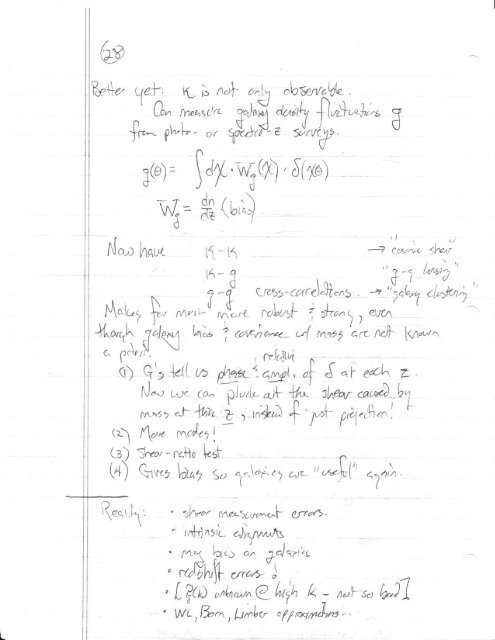 28
Better yet: κ is not only observable.
Can measure galaxy density fluctuations g
from photo- or spectro-z surveys.
g(θ) = ∫dχ · W_g(χ) · δ(χθ)
W_g = dn/dz (bias)
Now have κ-κ → "cosmic shear"
κ-g "g-g lensing"
g-g cross-correlations. → "galaxy clustering"
Makes for more robust & strong, even
though galaxy bias & covariance w/ mass are not known
a priori.
relative
(1) G's tell us phase & ampl. of δ at each z.
Now we can pluck out the shear caused by
mass at this z, instead of just projection!
(2) More modes!
(3) Shear-ratio test
(4) Gives bias so galaxies are "useful" again.
Reality: · shear measurement errors.
- intrinsic alignments
· mag bias on galaxies
· redshift errors!
· [P(k) unknown @ high k - not so bad]
· WL, Born, Limber approximations...